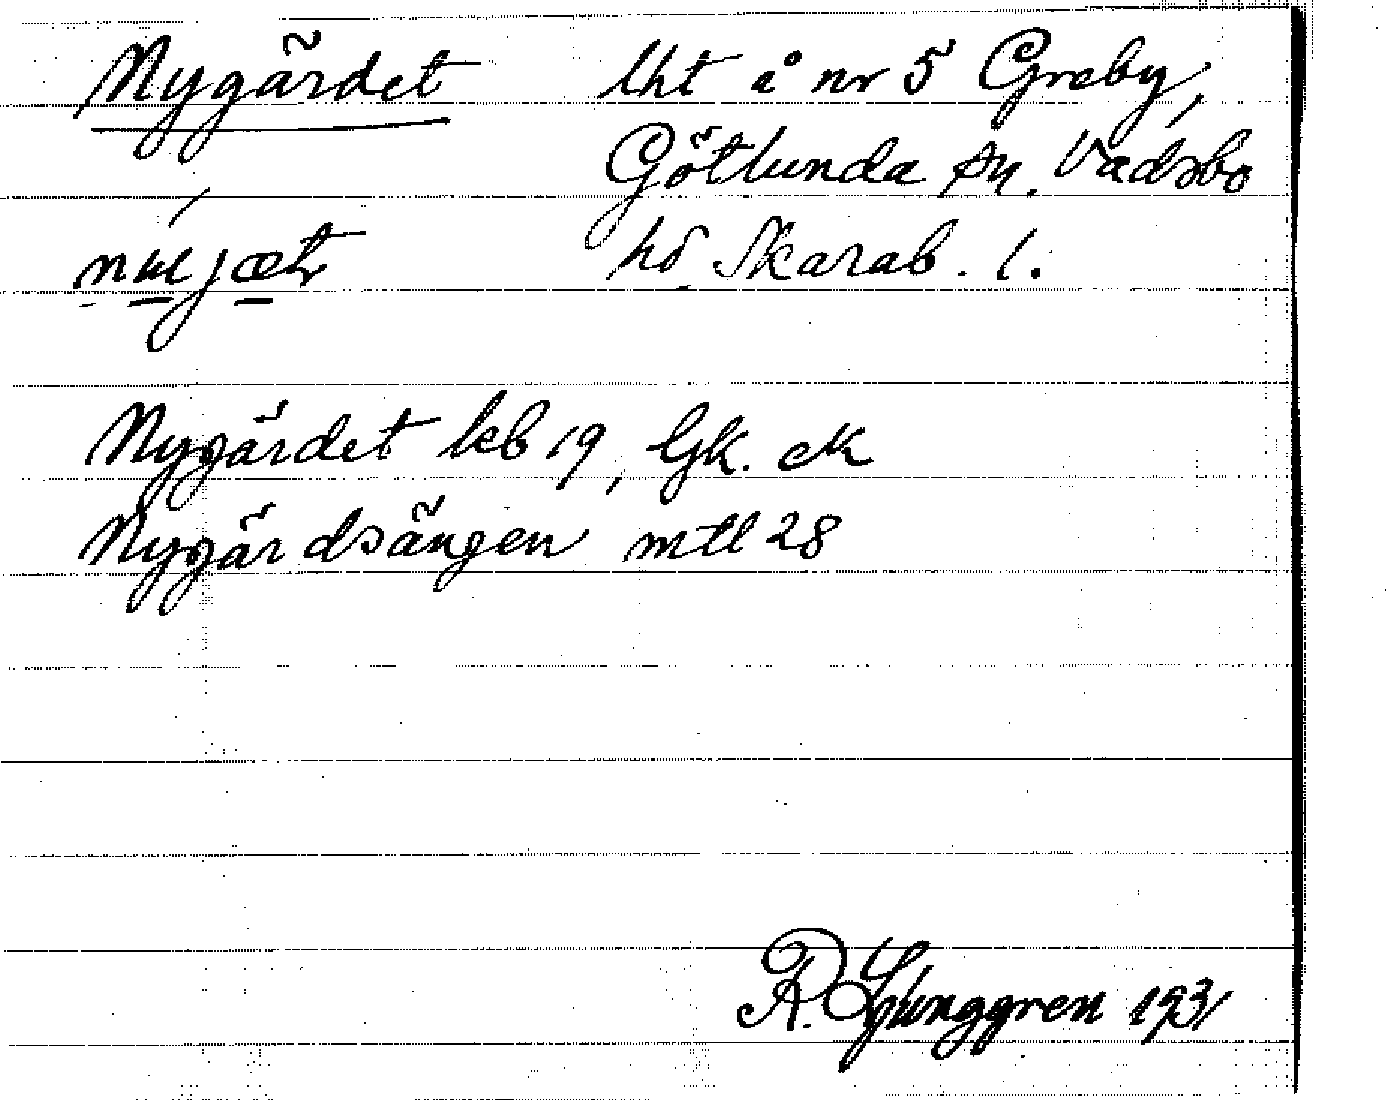 Nygärdet lht å nr 5 Greby,
Götlunda sn. Vadsbo
hd Skarab. l.
Nygärdet leb 19, Gk. ek
Nygärdsängen mtl 28
R. Ljunggren 1931